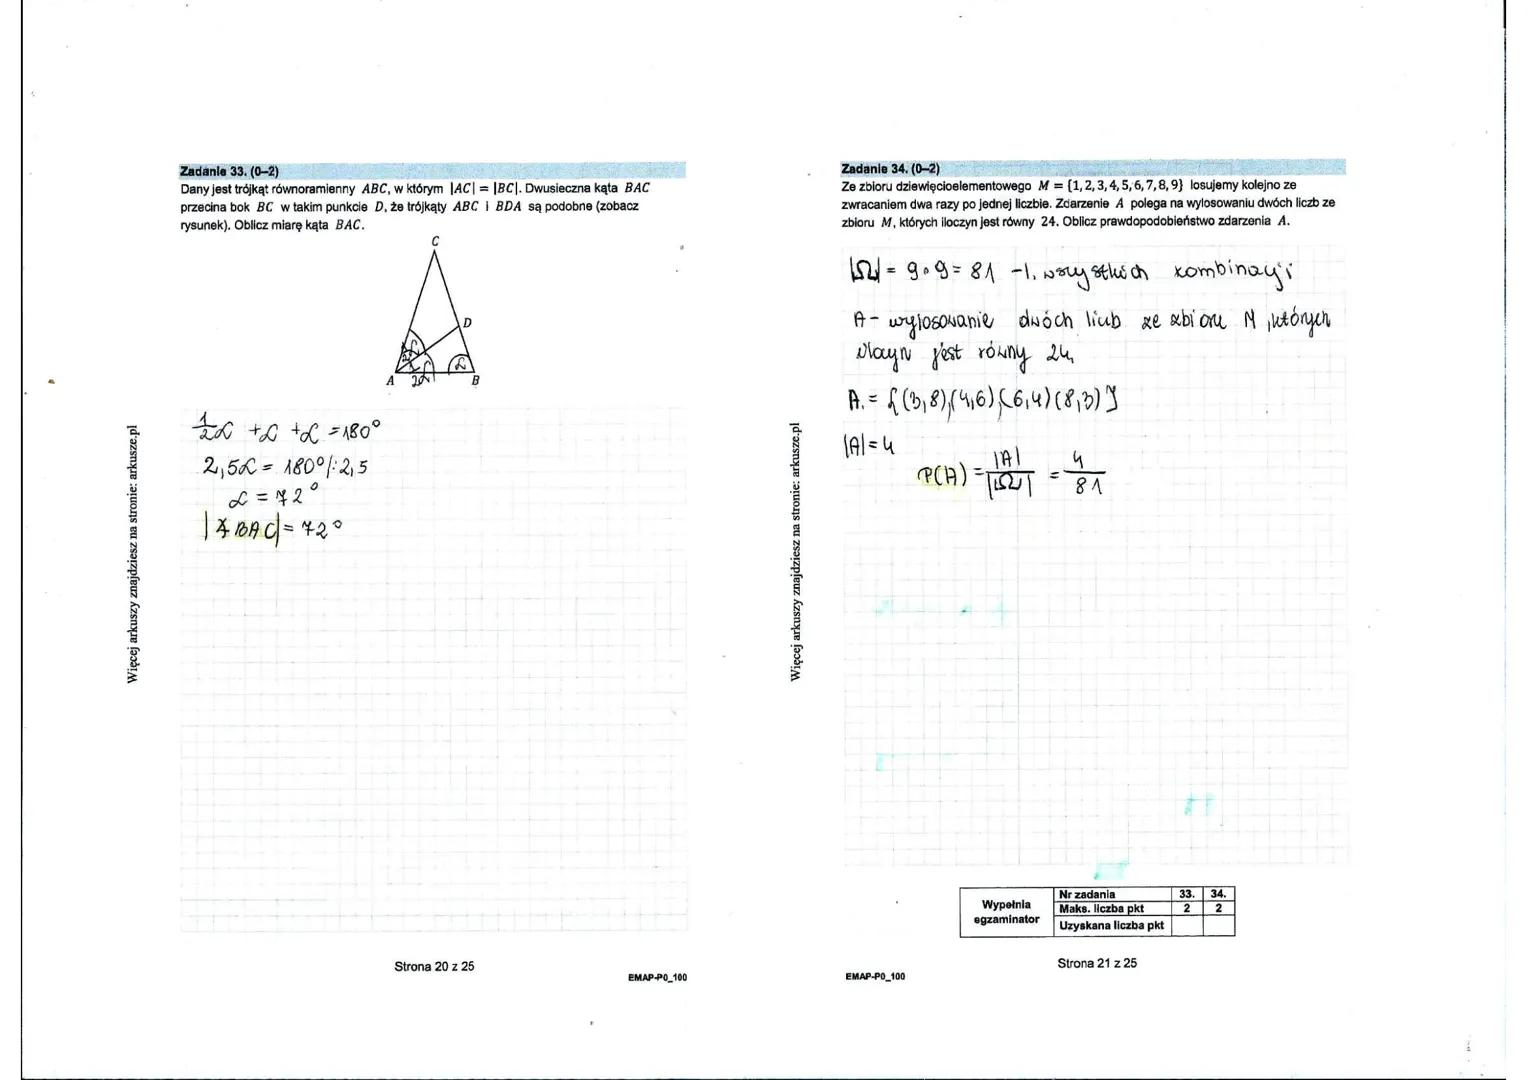 Zadanie 33. (0–2)
Dany jest trójkąt równoramienny ABC, w którym |AC| = |BC|. Dwusieczna kąta BAC
przecina bok BC w takim punkcie D, że trójkąty ABC i BDA są podobne (zobacz
rysunek). Oblicz miarę kąta BAC.
C
D
A
B
½α + α + α = 180°
2,5α = 180° /: 2,5
α = 72°
|∡ BAC| = 72°
Więcej arkuszy znajdziesz na stronie: arkusze.pl
Strona 20 z 25
EMAP-P0_100
Zadanie 34. (0–2)
Ze zbioru dziewięcioelementowego M = {1, 2, 3, 4, 5, 6, 7, 8, 9} losujemy kolejno ze
zwracaniem dwa razy po jednej liczbie. Zdarzenie A polega na wylosowaniu dwóch liczb ze
zbioru M, których iloczyn jest równy 24. Oblicz prawdopodobieństwo zdarzenia A.
|Ω| = 9 · 9 = 81 - l. wszystkich kombinacji
A - wylosowanie dwóch liczb ze zbioru M, których
iloczyn jest równy 24
A = {(3,8),(4,6),(6,4)(8,3)}
|A| = 4
P(A) = |A| / |Ω| = 4 / 81
Więcej arkuszy znajdziesz na stronie: arkusze.pl
Wypełnia egzaminator
Nr zadania 33. 34.
Maks. liczba pkt 2 2
Uzyskana liczba pkt
Strona 21 z 25
EMAP-P0_100